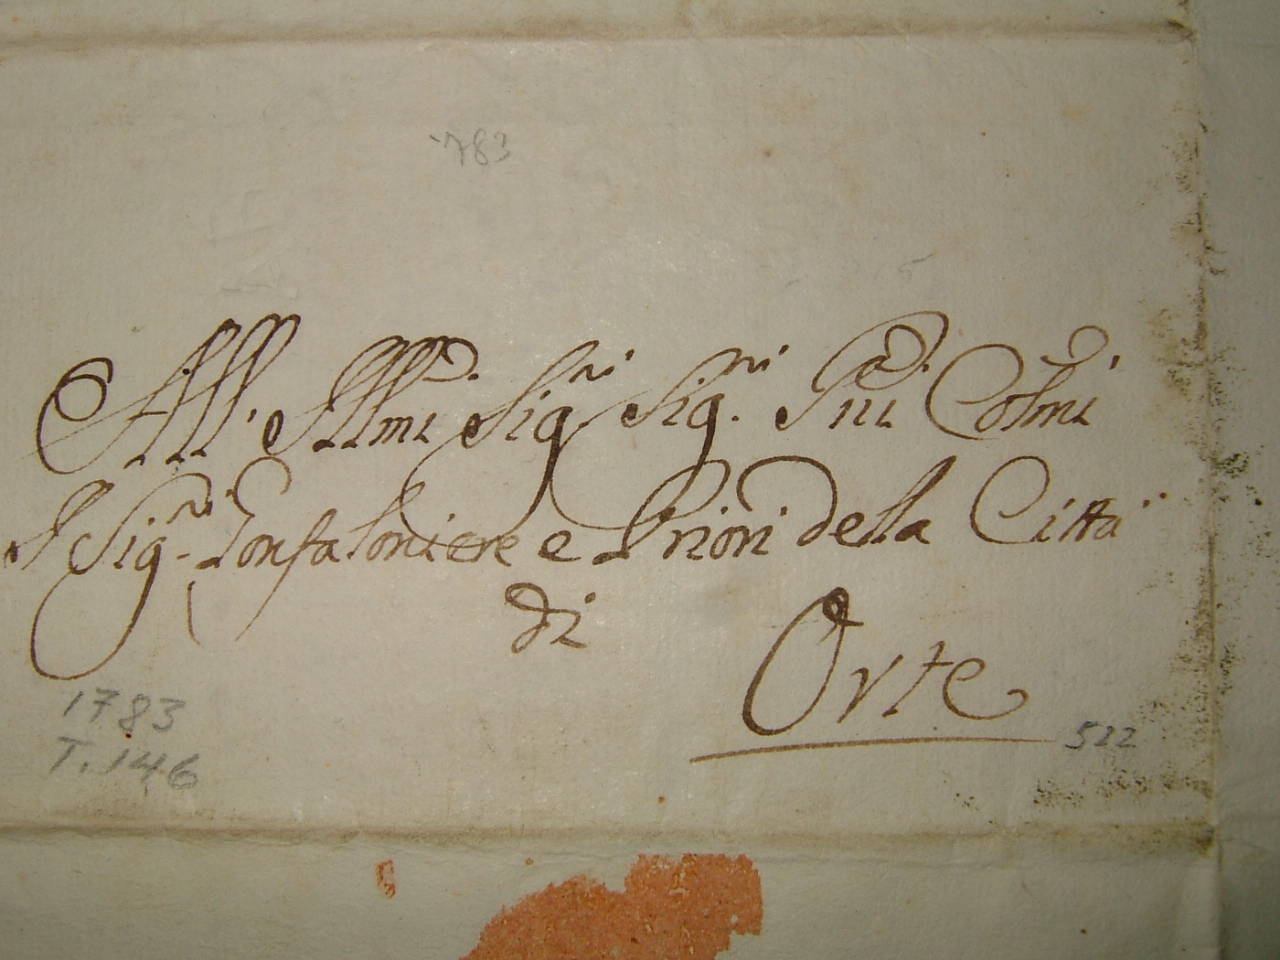 '783
All' Illmi Sigri Sigri Pni Colmi
I Sigri Gonfaloniere e Priori della Città
di
Orte
1783
T. 146
522